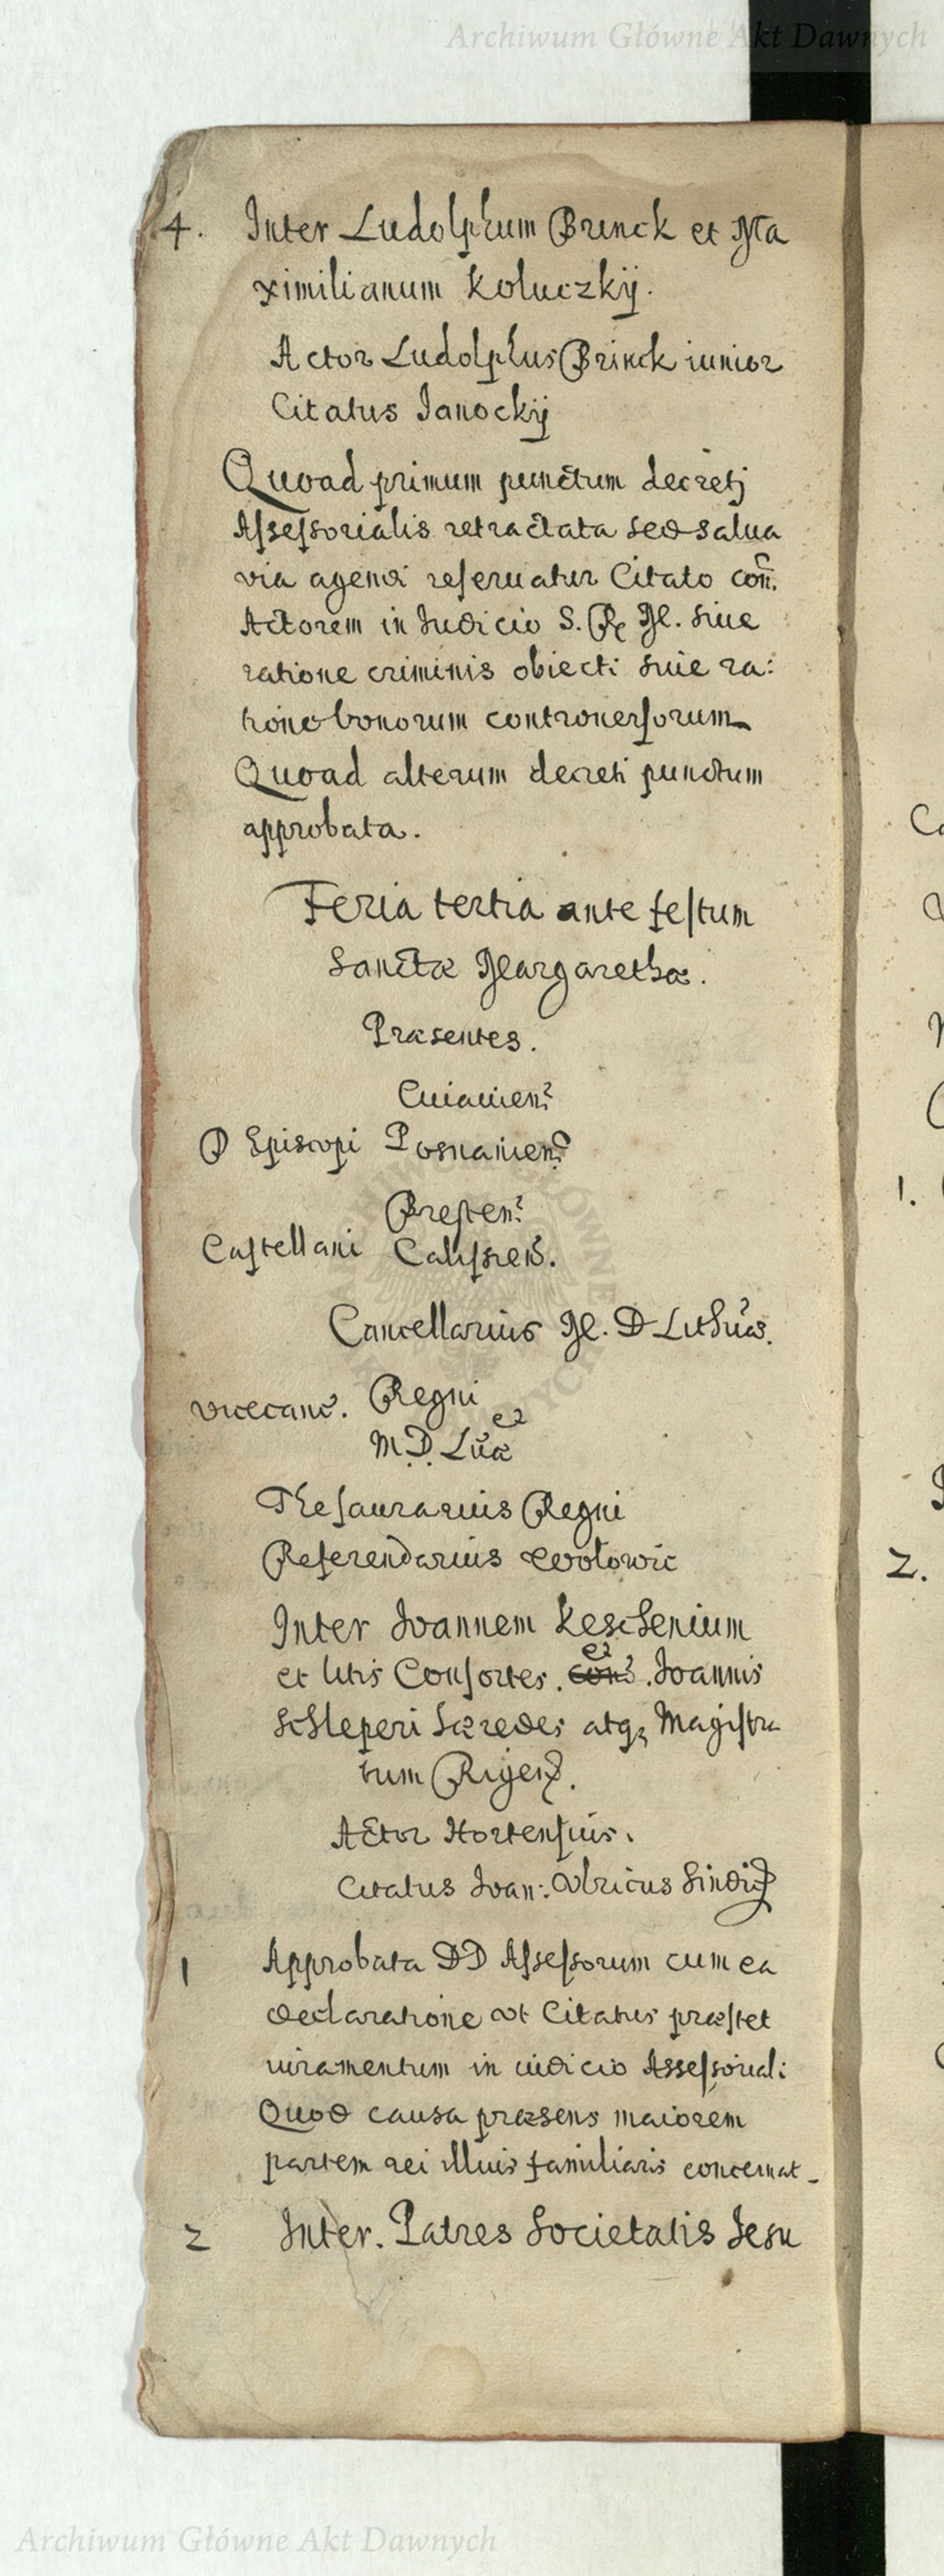 Archiwum Główne Akt Dawnych
4. Inter Ludolphum Brinck et Ma
ximilianum Koluczkij.
Actor Ludolphus Brinck iunior
Citatus Janockij
Quoad primum punctum decretj
Assessorialis retractata sed salua
via agendi reseruatur Citato con̄.
Actorem in Iudicio S. R. M. siue
ratione criminis obiecti siue ra:
tione bonorum controuersorum
Quoad alterum decreti punctum
approbata.
Feria tertia ante festum
Sanctæ Margarethæ.
Præsentes.
Cuiauien?
D Episcopi Posnanien?
Bresten?
Castellani Calissien̄.
Cancellarius M. D Lithuæ.
vicecanc. Regni
et
M. D. Luæ
Thesaurarius Regni
Referendarius Wołowic
Inter Joannem Keschenium
et
et litis Consortes . con? . Joannis
Schleperi hæredes atq, Magistra
tum Rigen̄.
Actor Hortensius.
Citatus Joan: Vlricus Sindic9
1 Approbata DD Assessorum cum ea
declaratione vt Citatus præstet
iuramentum in iudicio Assessoriali
Quod causa præsens maiorem
partem rei illius familiaris concernat
2 Inter. Patres Societatis Jesu
1.
2.
Archiwum Główne Akt Dawnych